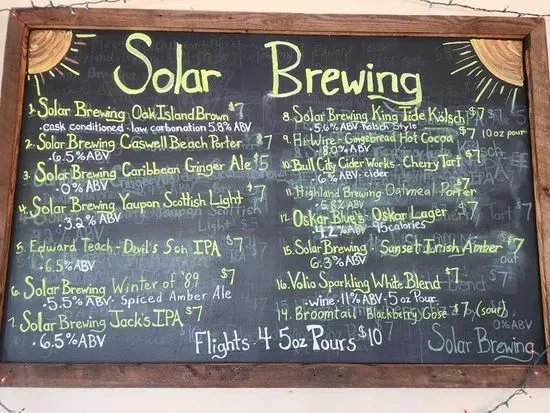 Solar Brewing
1. Solar Brewing Oak Island Brown $7
• cask conditioned • low carbonation 5.8% ABV
2. Solar Brewing Caswell Beach Porter $7
• 6.5% ABV
3. Solar Brewing Caribbean Ginger Ale $5
• 0% ABV
4. Solar Brewing Yaupon Scottish Light $7
• 3.2% ABV
5. Edward Teach - Devil's Son IPA $7
• 6.5% ABV
6. Solar Brewing Winter of '89 $7
• 5.5% ABV • Spiced Amber Ale
7. Solar Brewing Jack's IPA $7
• 6.5% ABV
8. Solar Brewing King Tide Kölsch $7
• 5.6% ABV • Kölsch Style
9. Hi-Wire - Gingerbread Hot Cocoa $7 10oz pour
• 8.0% ABV
10. Bull City Cider Works - Cherry Tart $7
• 6% ABV • cider
11. Highland Brewing Oatmeal Porter $7
• 5.8% ABV
12. Oskar Blue's - Oskar Lager $7
4.2% ABV 95 calories
15. Solar Brewing Sunset Irish Amber $7
6.3% ABV
16. Volio Sparkling White Blend $7
• wine • 11% ABV • 5oz Pour
14. Broomtail Blackberry Gose $7 (sour)
0% ABV
Flights • 4 5oz Pours $10
Solar Brewing